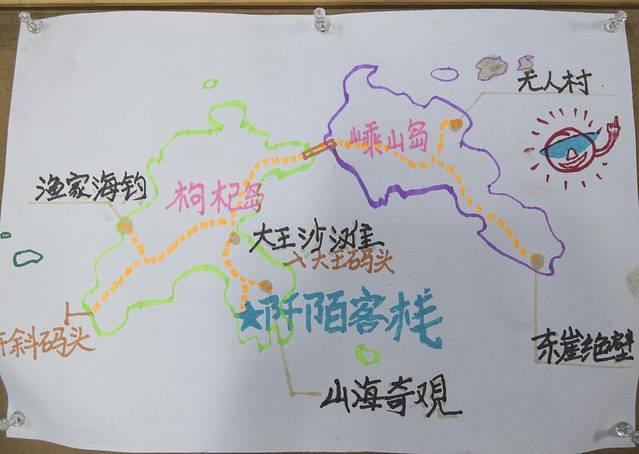 无人村
嵊山岛
渔家海钓
枸杞岛
大王沙滩
大王码头
阡陌客栈
斜码头
东崖绝壁
山海奇觀